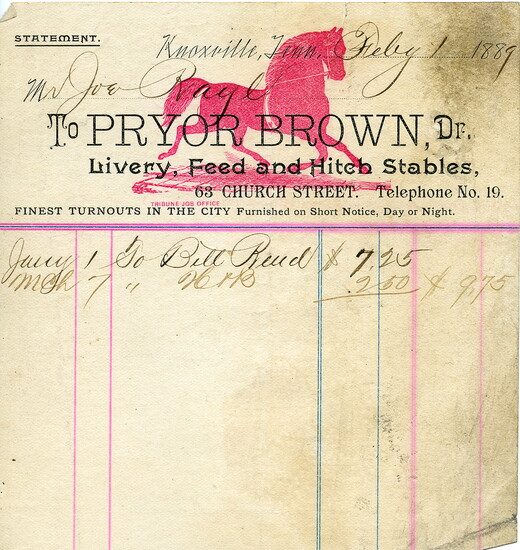 STATEMENT.
Knoxville, Tenn. Feby 1 1889
Mr Joe Rayl
To PRYOR BROWN, Dr.
Livery, Feed and Hitch Stables,
63 CHURCH STREET. Telephone No. 19.
TRIBUNE JOB OFFICE
FINEST TURNOUTS IN THE CITY Furnished on Short Notice, Day or Night.
Jany 1 To Bill Rend $ 7.25
7 " 2.50 $ 9.75